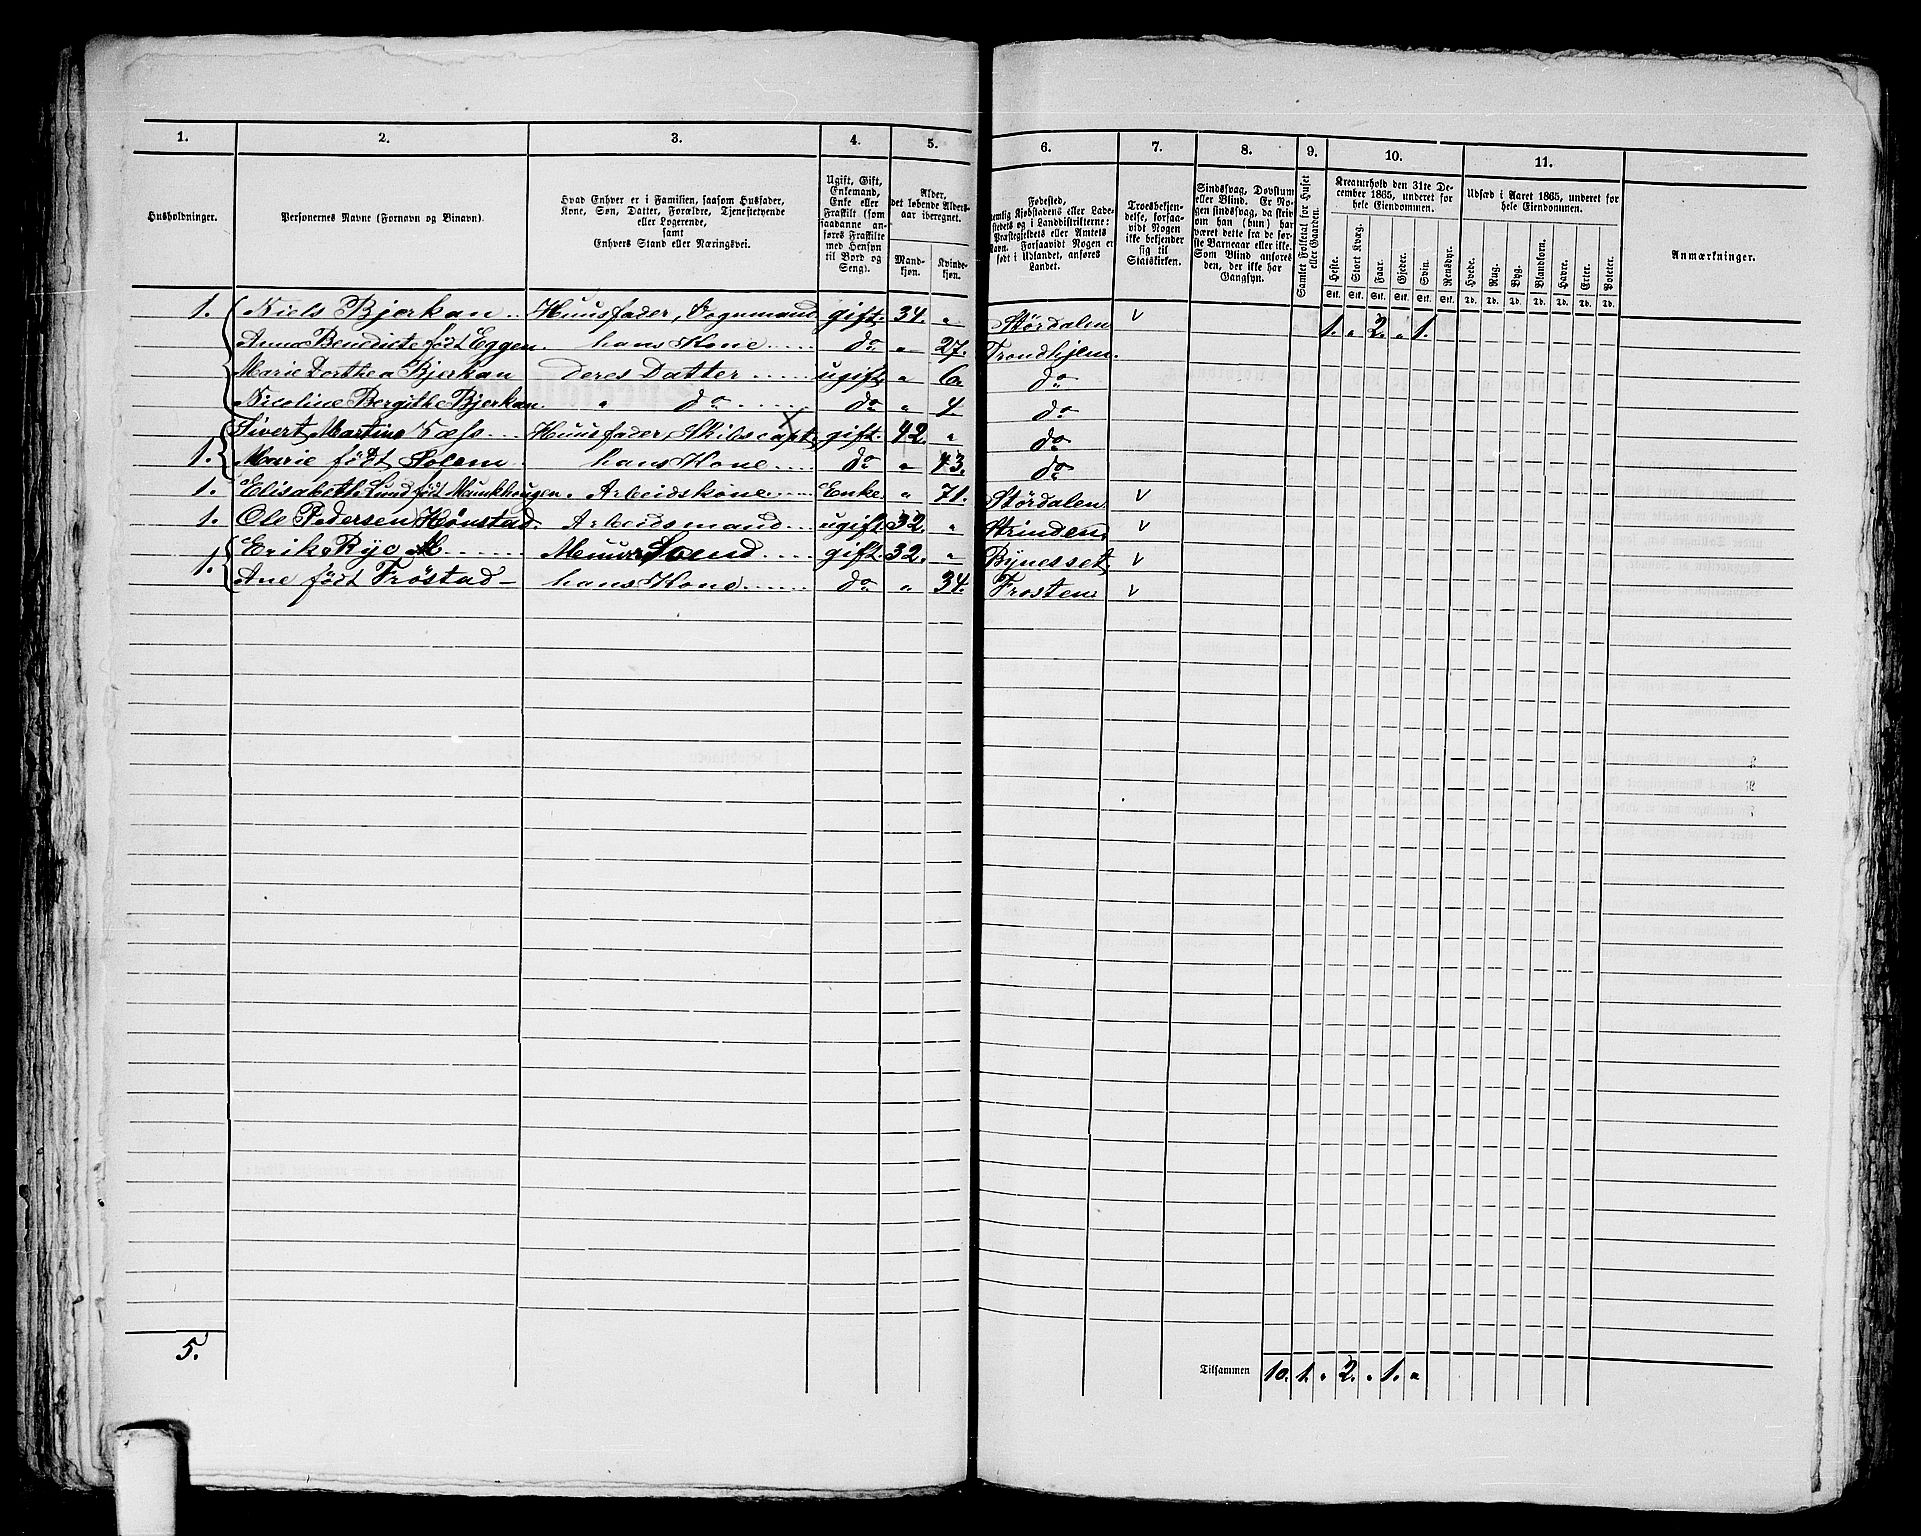 1. 2. 3. 4. 5. 6. 7. 8. 9. 10. 11.
Husholdninger.
Personernes Navne (Fornavn og Binavn).
Hvad Enhver er i Familien, saasom Husfader,
Kone, Søn, Datter, Forældre, Tjenestetyende
eller Logerende,
samt
Enhvers Stand eller Næringsvei.
Ugift, Gift,
Enkemand,
Enke eller
Fraskilt (som
saadanne an-
føres Fraskilte
med Hensyn
til Bord og
Seng).
Alder,
det løbende Alders-
aar iberegnet.
Mand-
kjøn.
Kvinde-
kjøn.
Fødested,
Kjøbstadens eller Lade-
stedets og i Landdistrikterne:
Præstegjeldets eller Amtets
Navn. Forsaavidt Nogen er
født i Udlandet, anføres
Landet.
Troesbekjen-
delse, forsaa-
vidt Nogen
ikke bekjender
sig til
Statskirken.
Sindssvag, Døvstum
eller Blind. Er No-
gen sindssvag, da skriv
om han (hun) har
været dette fra de før-
ste Barneaar eller ikke.
Som Blind anføres
den, der ikke har
Gangsyn.
Samlet Folketal for Huset
eller Gaarden.
Kreaturhold den 31te De-
cember 1865, underet for
hele Eiendommen.
Heste. Stort Kvæg. Faar. Gjeder. Svin. Rensdyr.
Stk. Stk. Stk. Stk. Stk. Stk.
Udsæd i Aaret 1865, underet for
hele Eiendommen.
Hvede. Rug. Byg. Blandkorn. Havre. Erter. Poteter.
Td. Td. Td. Td. Td. Td. Td.
Anmærkninger.
1. Niels Bjerkan .. Huusfader, Vognmand gift. 34. „ Størdalen v 1. „ 2. „ 1.
Anna Benedicte født Eggen. hans Kone .... do „ 27. Trondhjem.
Marie Dorthea Bjerkan deres Datter ..... ugift „ 6. do
Nicoline Bergithe Bjerkan. „ do ..... do „ 4 do
1. Sivert Martinus Næss ... Huusfader, Skibscapt. gift. 42. „ do
Marie født Solem . hans Kone .... do „ 43. do
1. Elisabeth Lund født Munkhougen . Arbeidskone ..... Enke „ 71. Størdalen v
1. Ole Pedersen Hønstad. Arbeidsmand ... ugift 32. „ Strinden v
1. Erik Rye ...... MuurSvend .... gift. 32. „ Bynesset v
Ane født Trøstad — hans Kone ...... do „ 34. Frosten v
5.
Tilsammen 10. 1. „ 2. „ 1. „